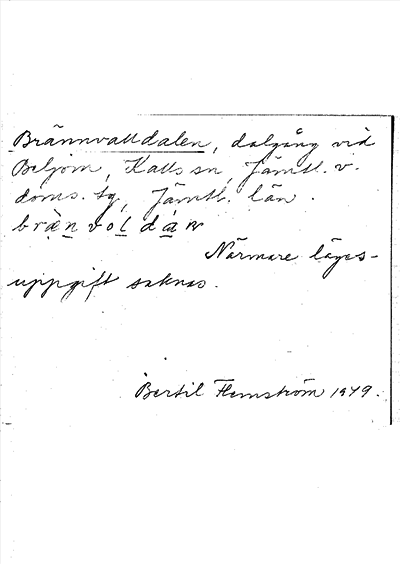 Brännvalldalen, dalgång vid
Beljom, Kalls sn, Jämtl. v.
doms. tg, Jämtl. län.
brànvoldáɴ
Närmare läges-
uppgift saknas.
Bertil Flemström 1979.